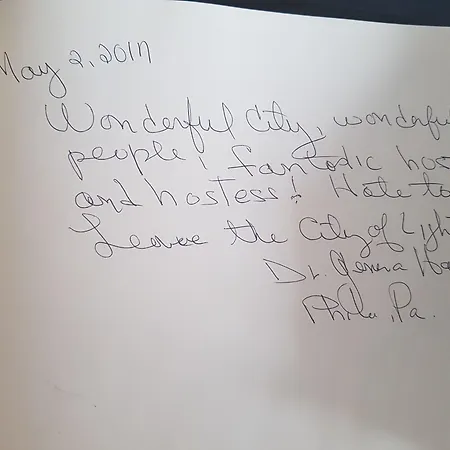 May 2, 2017
Wonderful City, wonderful
people, fantadic
and hostess! Hate to
Leave the City of Light
Dr. Geneva
Phila, Pa.